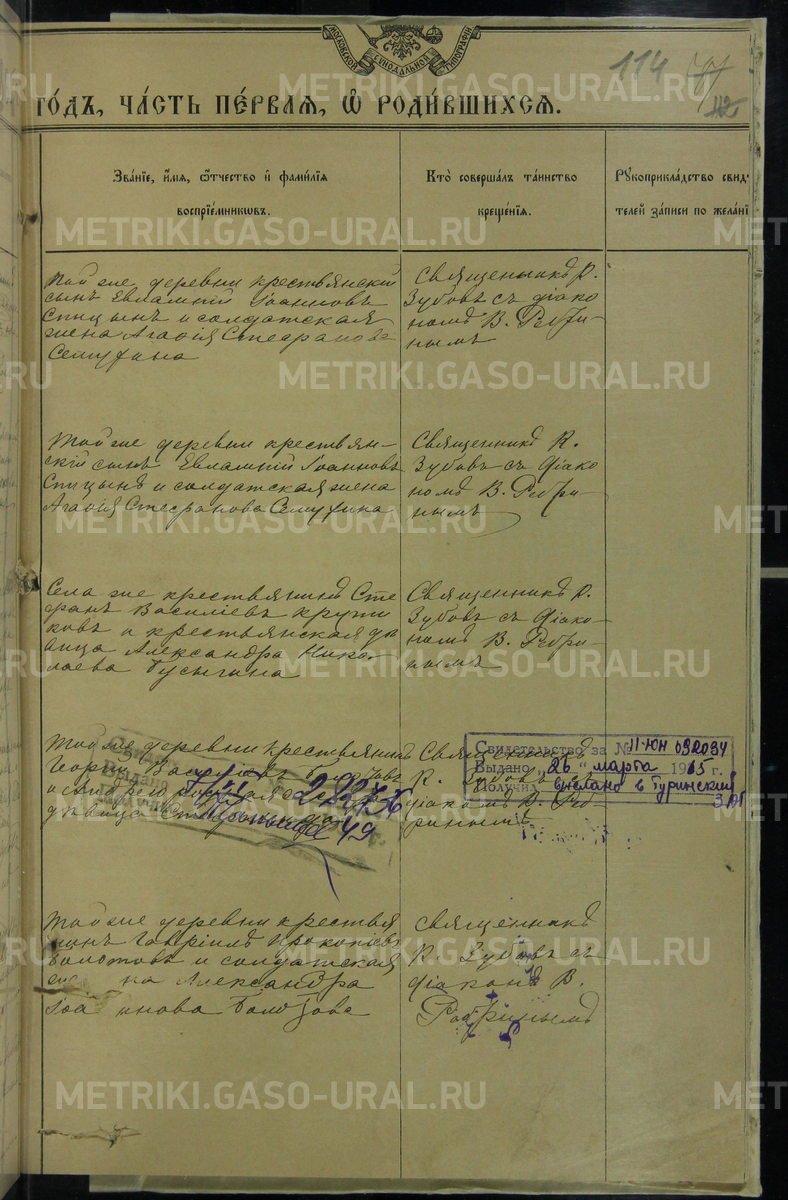 МОСКОВСКОЙ СѴНОДАЛЬНОЙ ТИПОГРАФІИ
114
112
ГО́ДЪ, ЧА́СТЬ ПЕ́РВАѦ, Ѽ РОДИ́ВШИХСѦ.
Зва́нїе, и҆́мѧ, ѻ҆́тчество и҆ фами́лїѧ
воспрїе́мникѡвъ.
Кто̀ соверша́лъ та́инство
креще́нїѧ.
Рꙋкоприкла́дство свид-
телей за́писи по жела́нї
Той же деревни крестьянскій
сынъ Евлампій Іоанновъ
Спицынъ и солдатская
жена Агаѳія Стефанова
Семухина
Священникъ К.
Зубовъ съ діако
номъ В. Ребри-
нымъ
Той же деревни крестьян-
скій сынъ Евлампій Іоанновъ
Спицынъ и солдатская жена
Агаѳія Стефанова Семухина
Священникъ К.
Зубовъ съ діако
номъ В. Ребри-
нымъ
Села же крестьянинъ Сте
фанъ Василіевъ Крути
ковъ и крестьянская дѣ
вица Александра Нико-
лаева Гусыгина
Священникъ К.
Зубовъ съ діако-
номъ В. Ребри-
нымъ
Той же деревни крестьянинъ
Георгій Васильевъ
дѣвица
222756
49
Священникъ
К. Зубовъ съ
діакономъ В. Реб
ринымъ
Свидетельство за № 11-ЮН 092034
Выдано „26" марта 1965 г.
Получил выслано в Туринский
Той же деревни крестья
нинъ Гавріилъ Прокопіевъ
Болотовъ и солдатская
жена Александра
Іоаннова Болотова
Священникъ
К. Зубовъ съ
діакономъ В.
Ребринымъ
METRIKI.GASO-URAL.RU